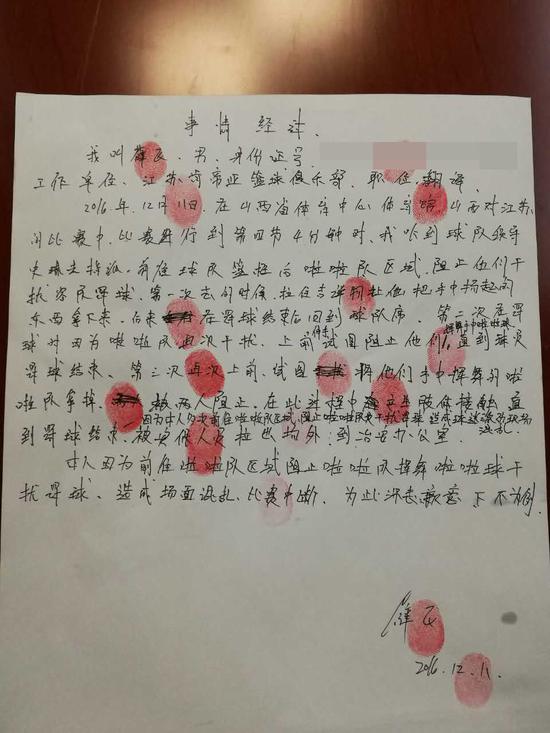 事情经过.
我叫薛 . 男. 身份证号
工作单位. 江苏肯帝亚篮球俱乐部. 职位. 翻译
2016年. 12月11日. 在山西省体育中心体育馆. 山西对江苏
间比赛中. 比赛进行到第四节4分钟时. 我 到球队领导
史琳杰指派. 前往球队篮框后啦啦队区域. 阻止他们干
扰客队罚球. 第一次去的时候. 拉住吉祥物让他把手中扬起的
东西拿下来. 后来 在罚球结束后回到球队席 第二次在罚
球时因为啦啦队再次干扰. 上前 试图阻止他们挥舞啦啦球. 直到球员
罚球结束. 第三次再次上前. 试图 将他们手中挥舞的啦
啦队拿掉. 被两人阻止. 在此过程中 产生肢体接触 直
因为本人多次前往啦啦队区域. 阻止啦啦队员干扰罚球. 造成球迷激动 现场混乱.
到罚球结束. 被安保人员拉出场外. 到治安办公室.
本人因为前往啦啦队区域阻止啦啦队挥舞啦啦球干
扰罚球. 造成场面混乱. 比赛中断. 为此深表歉意 下不为例.
薛
2016. 12. 11.